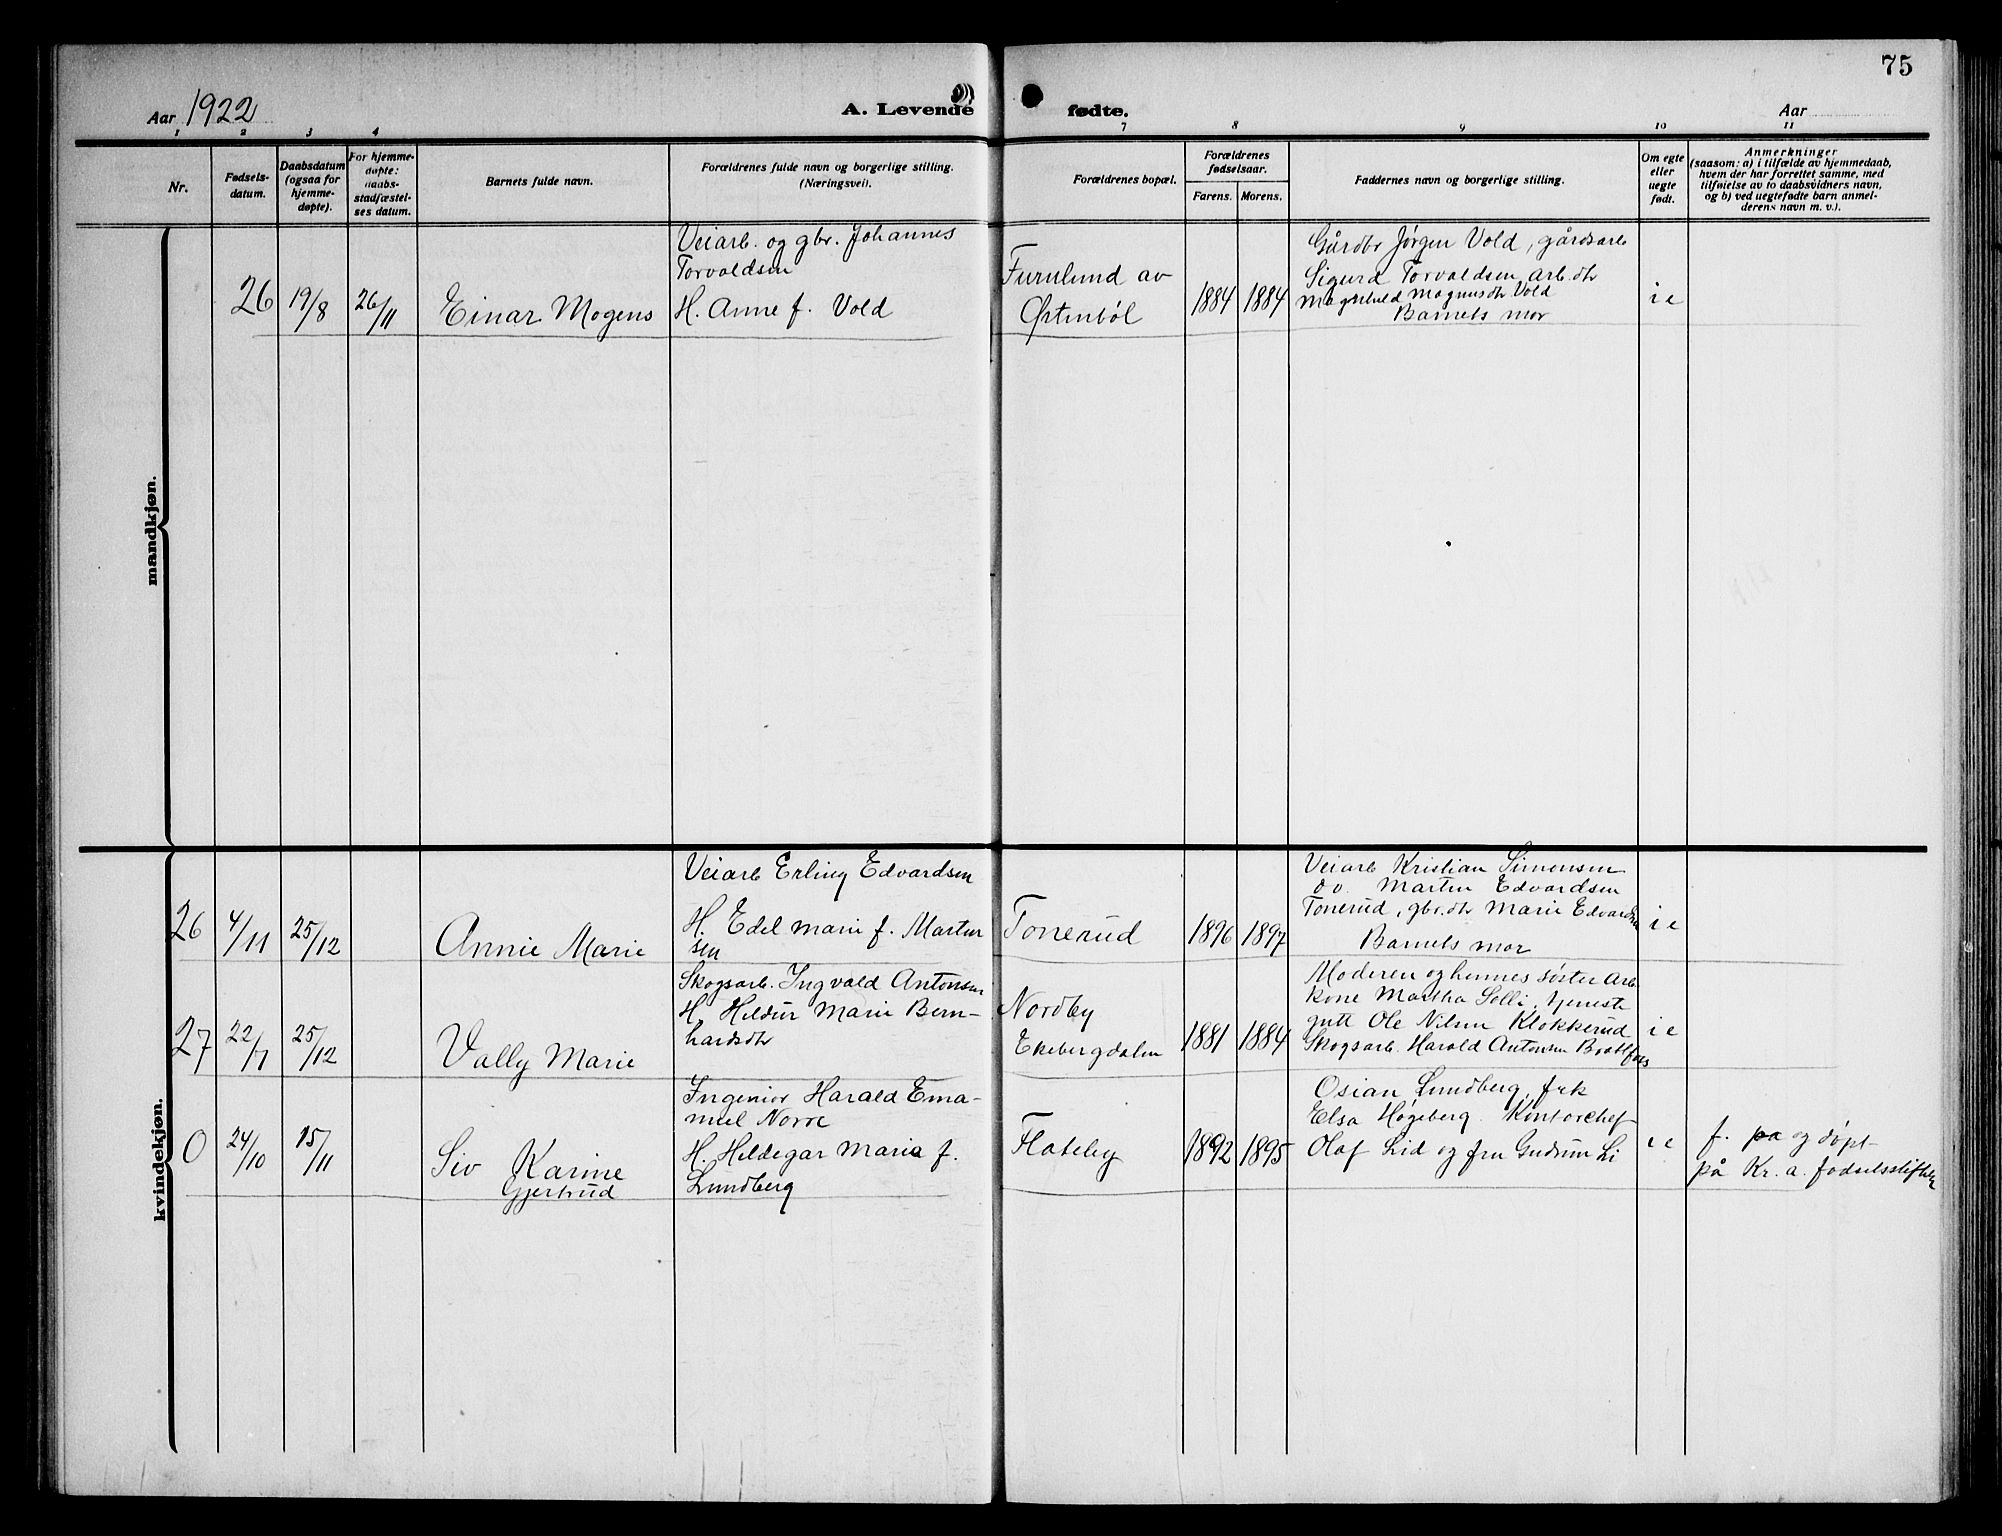 75
Aar 1922
A. Levende fødte.
Aar
1 2 3 4 7 8 9 10 11
Nr.
Fødsels-
datum.
Daabsdatum
(ogsaa for
hjemme-
døpte).
For hjemme-
døpte:
daabs-
stadfæstel-
ses datum.
Barnets fulde navn.
Forældrenes fulde navn og borgerlige stilling.
(Næringsvei).
Forældrenes bopæl.
Forældrenes
fødselsaar.
Farens. Morens.
Faddernes navn og borgerlige stilling.
Om egte
eller
uegte
født.
Anmerkninger
(saasom: a) i tilfælde av hjemmedaab,
hvem der har forrettet samme, med
tilføielse av to daabsvidners navn,
og b) ved uegtefødte barn anmel-
derens navn m. v.).
mandkjøn.
26 19/8 26/11 Einar Mogens
Veiarb. og gbr. Johannes
Torvaldsen
H. Anne f. Vold
Furulund av
Østenböl
1884 1884
Gårdbr Jørgen Vold, gårdsarb
Sigurd Torvaldsen, arb.dtr
Magnhild Magnusdtr Vold
Barnets mor
i e
kvindekjøn.
26 4/11 25/12 Annie Marie
Veiarb Erling Edvardsen
H. Edel Marie f. Martin
sen
Tonerud
1896 1897
Veiarb Kristian Simensen
do. Martin Edvardsen
Tonerud, gbr.dtr Marie Edvardsen
Barnets mor
i e
27 22/7 25/12 Vally Marie
Skogsarb. Ingvald Antonsen
H. Hildur Marie Bern-
hardsdtr
Nordby
Ekebergdalen
1881 1884
Moderen og hennes søster Arb.
kone Martha Solli, tjeneste
gutt Ole Nilsen Klokkerud
Skogsarb. Harald Antonsen Braatfos
i e
0 24/10 15/11 Siv Karine
Gjertrud
Ingeniør Harald Ema-
nuel Norre
H. Hildegar Maria f.
Lundberg
Flateby
1892 1895
Osian Lundberg, frk
Elsa Høgeberg. Kontorchef
Olaf Lid og fru Gudrun Li
i e
f. pa og døpt
på Kr. a. fødselsstiftelse